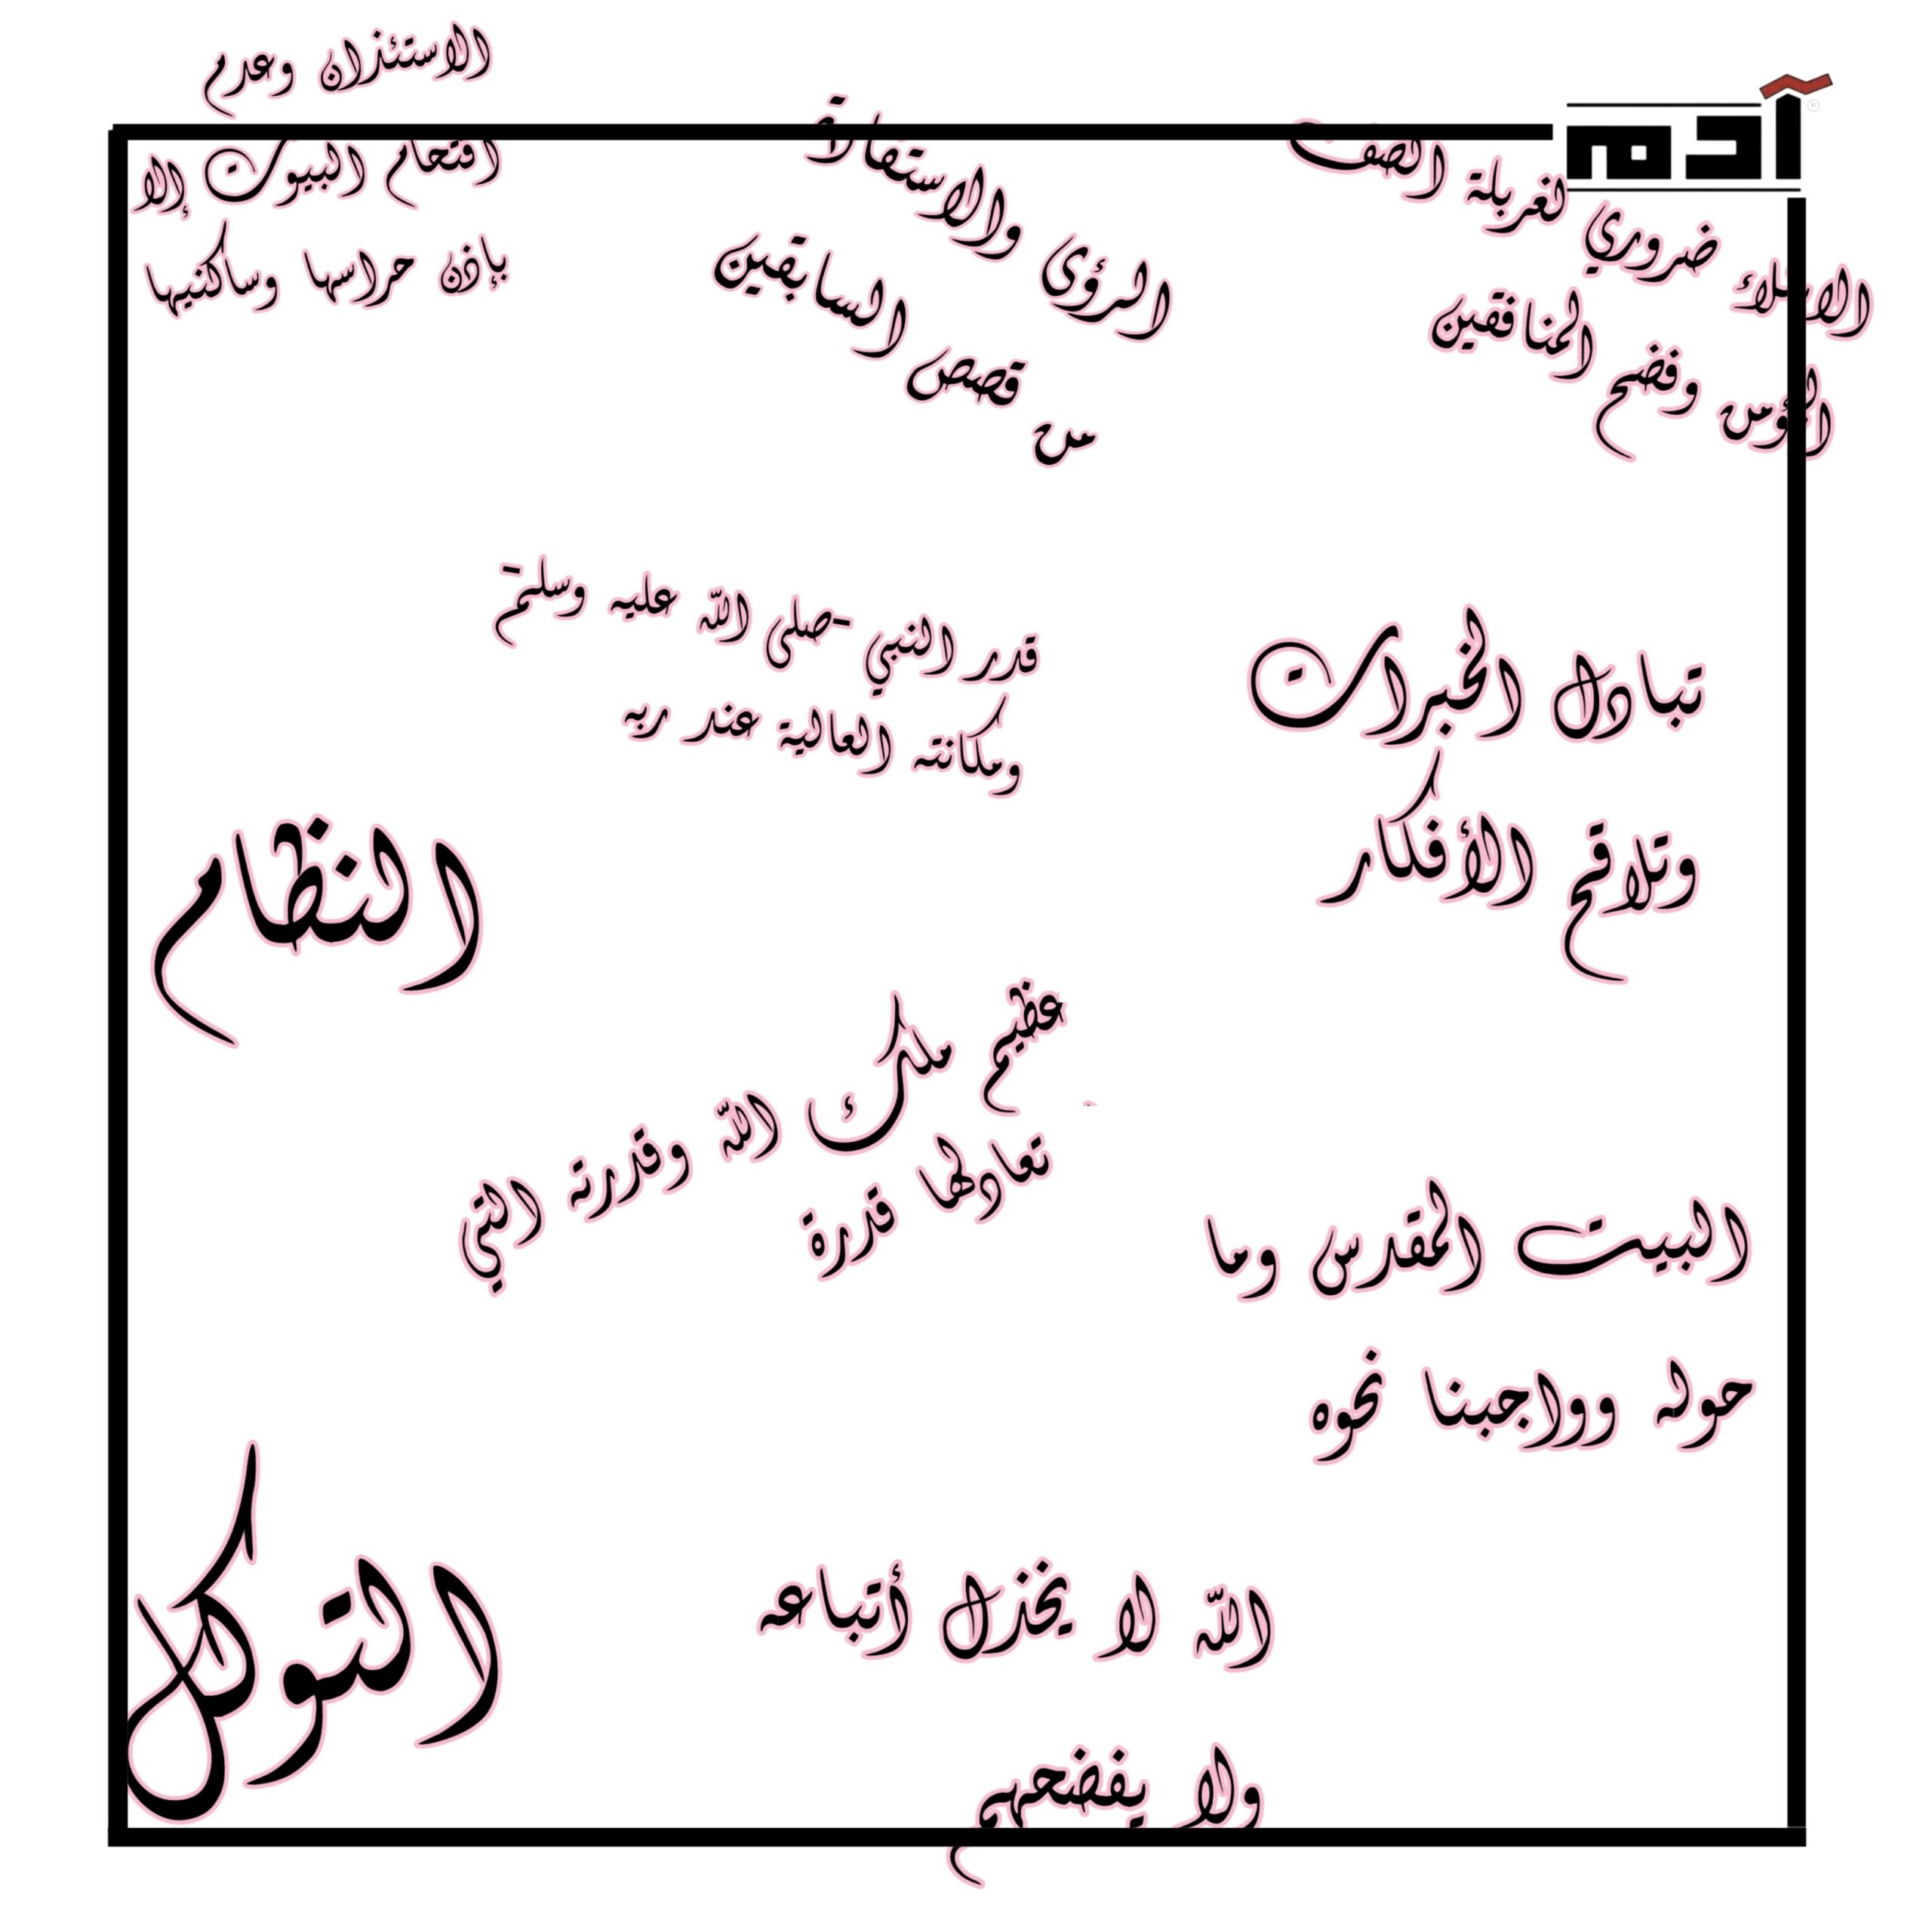 آدم
الابتلاء ضروري لغربلة الصف
المؤمن وفضح المنافقين
الرؤى والاستفادة
من قصص السابقين
الاستئذان وعدم
اقتحام البيوت إلا
بإذن حراسها وساكنيها
تبادل الخبرات
وتلاقح الأفكار
قدر النبي -صلى الله عليه وسلم-
ومكانته العالية عند ربه
النظام
عظيم ملك الله وقدرته التي
تعادلها قدرة
البيت المقدس وما
حوله وواجبنا نحوه
التوكل
الله لا يخذل أتباعه
ولا يفضحهم